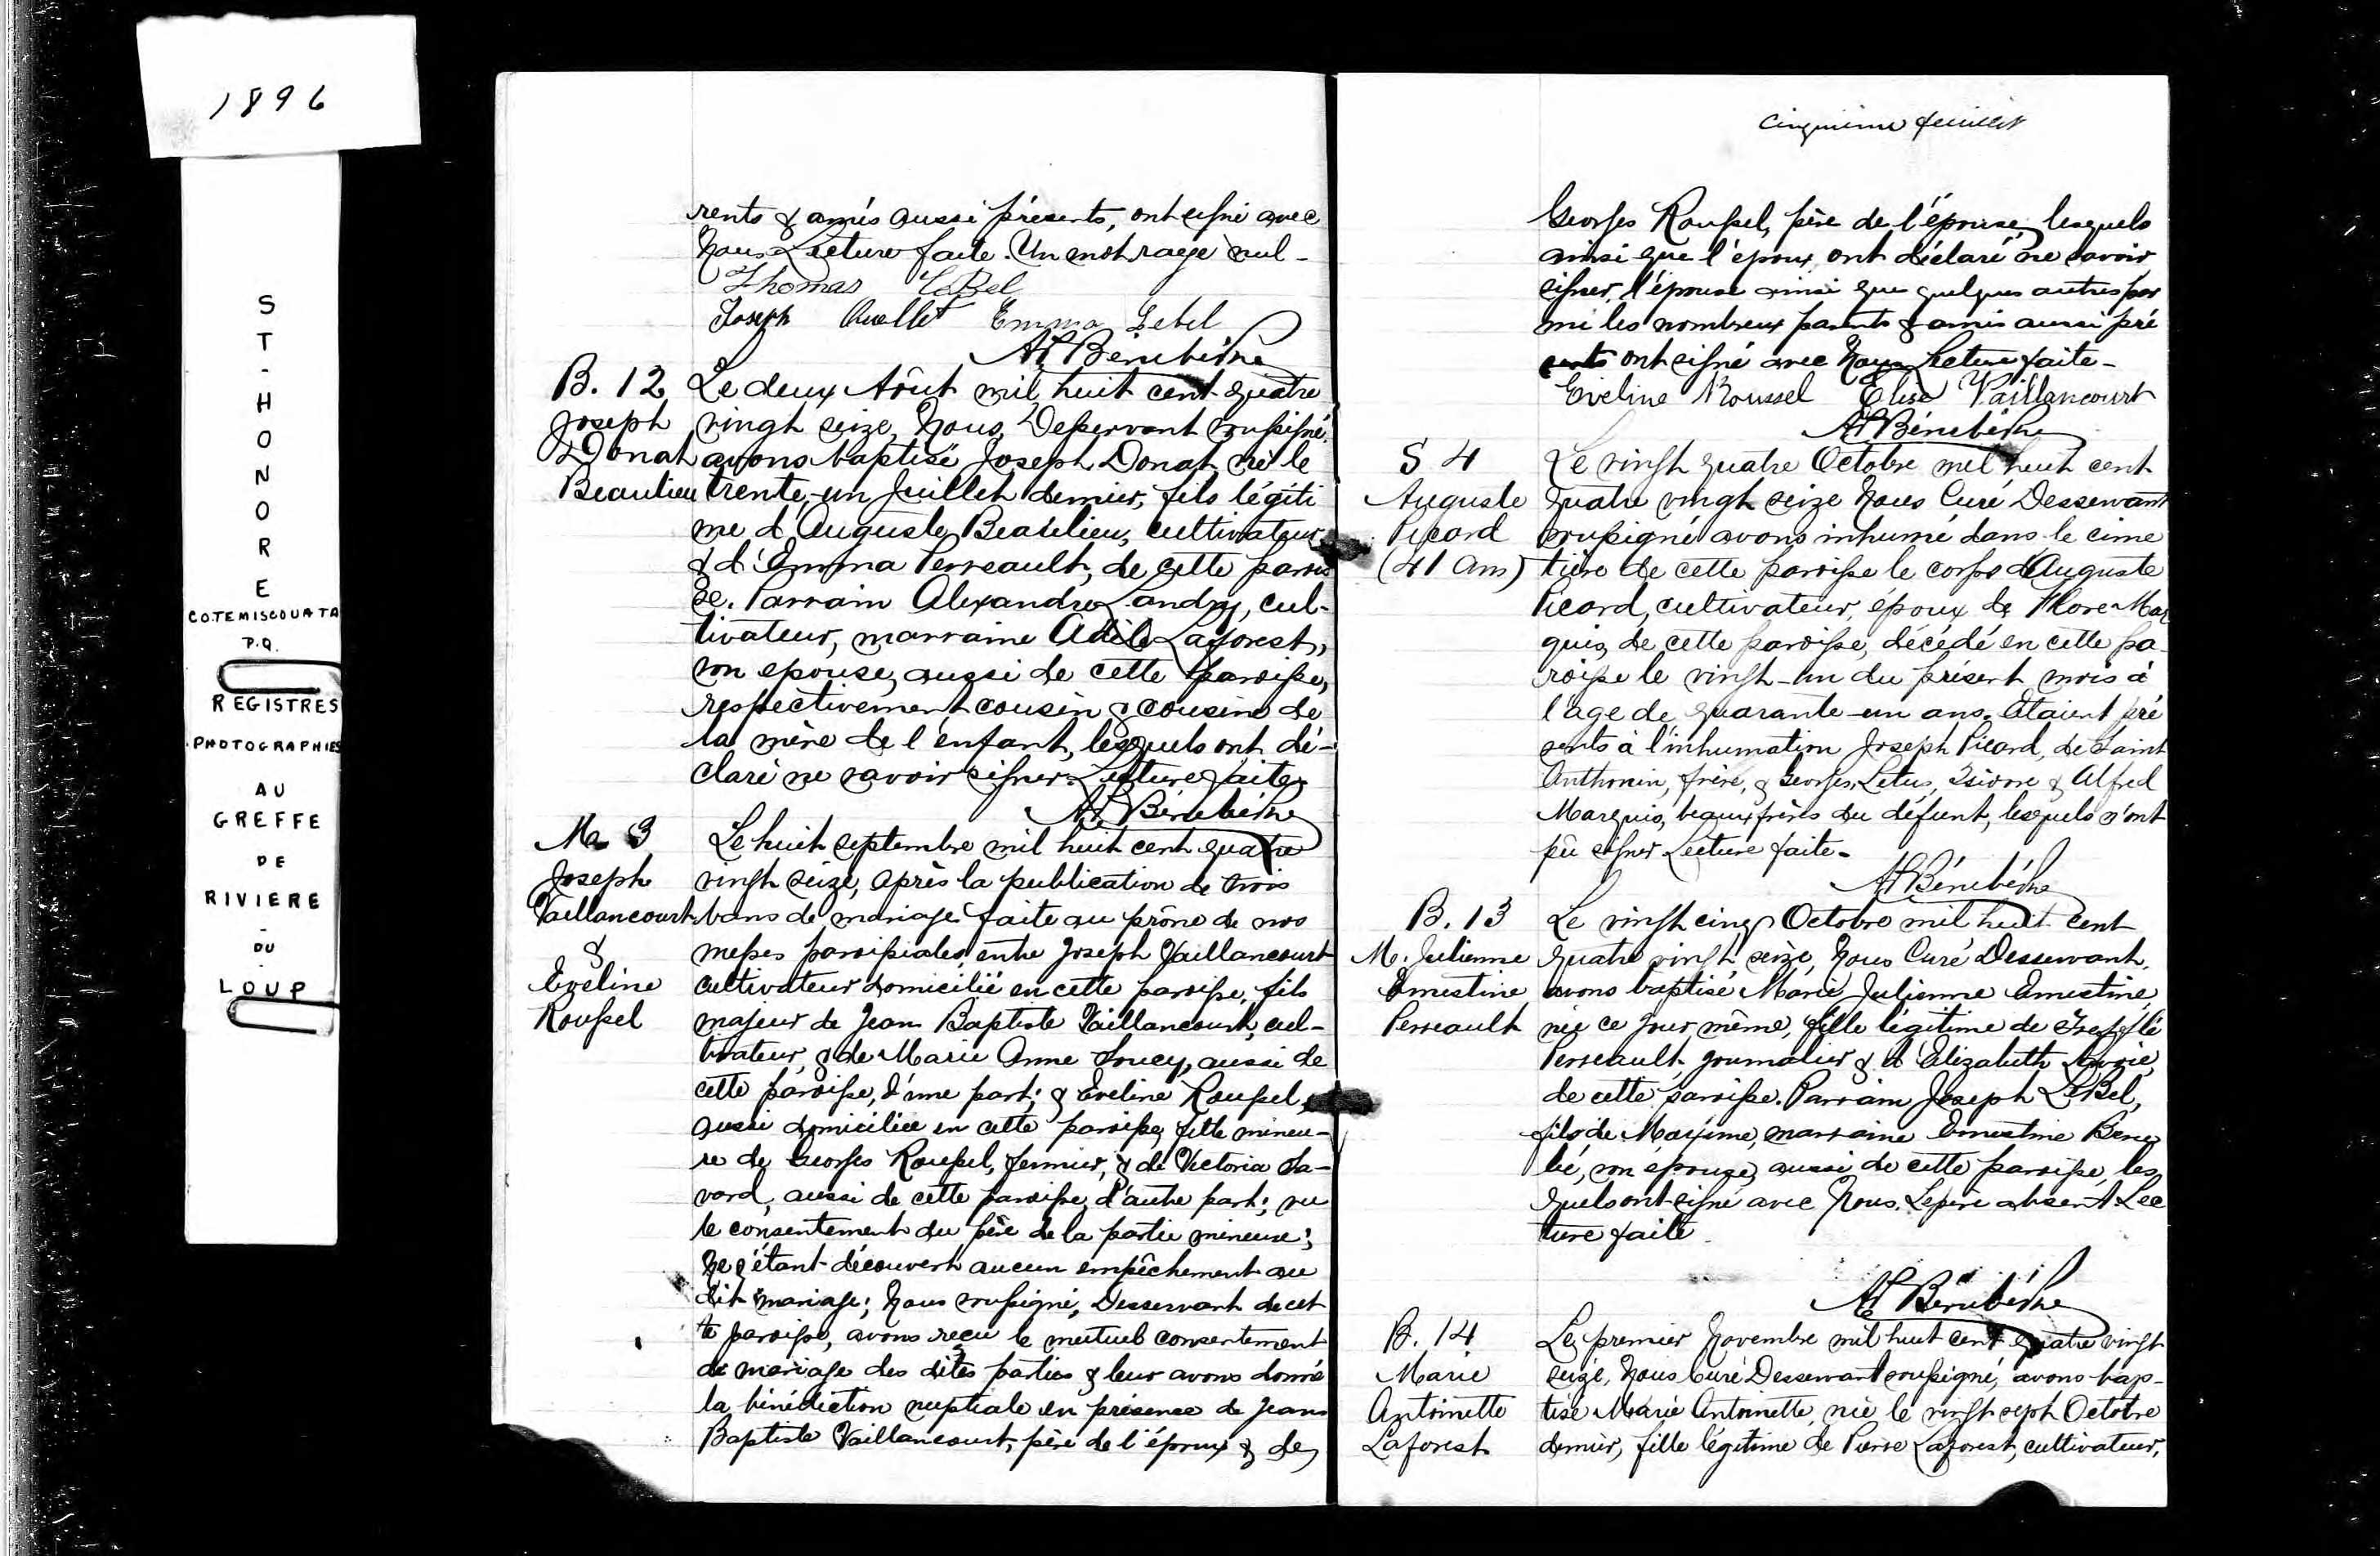 1896
ST-HONORE
CO.TEMISCOUATA
P.Q.
REGISTRES
PHOTOGRAPHIES
AU
GREFFE
DE
RIVIERE
-
DU
-
LOUP
rents & amis aussi présents, ont signé avec
Nous. Lecture faite. Un mot rayé nul -
Thomas LeBel
Joseph Ouellet Emma Lebel
B. 12
Joseph
Donat
Beaulieu
Le deux Août mil huit cent quatre
vingt seize, Nous Desservant soussigné
avons baptisé Joseph Donat, né le
trente-un Juillet dernier, fils légiti
me d'Auguste Beaulieu, cultivateur
& d'Emma Perreault, de cette parois
se. Parrain Alexandre Landry, cul-
tivateur, marraine Adèle Laforest,
son epouse, aussi de cette paroisse,
respectivement cousin & cousine de
la mère de l'enfant, lesquels ont dé-
claré ne savoir signer. Lecture faite.
M. 3
Joseph
Vaillancourt
&
Eveline
Roussel
Le huit septembre mil huit cent quatre
vingt seize, après la publication de trois
bans de mariage faite au prône de nos
messes paroissiales entre Joseph Vaillancourt
cultivateur domicilié en cette paroisse, fils
majeur de Jean Baptiste Vaillancourt, cul-
tivateur, & de Marie Anne Soucy, aussi de
cette paroisse, d'une part; & Eveline Roussel,
aussi domiciliée en cette paroisse, fille mineu-
re de Georges Roussel, fermier, & de Victoria Sa-
vard, aussi de cette paroisse, d'autre part; vu
le consentement du père de la partie mineure;
Ne s'étant découvert aucun empêchement au
dit mariage; Nous soussigné, Desservant de cet
te paroisse, avons reçu le mutuel consentement
de mariage des dites parties & leur avons donné
la bénédiction nuptiale en présence de Jean
Baptiste Vaillancourt, père de l'époux & de
Cinquième feuillet
Georges Roussel, père de l'épouse, lesquels
ainsi que l'époux ont déclaré ne savoir
signer, l'épouse ainsi que quelques autres par
mi les nombreux parents & amis aussi pré
sents ont signé avec Nous. Lecture faite -
Eveline Roussel Elise Vaillancourt
S 4
Auguste
Picard
(41 Ans)
Le vingt quatre Octobre mil huit cent
quatre vingt seize Nous Curé Desservant
soussigné avons inhumé dans le cime
tière de cette paroisse le corps d'Auguste
Picard, cultivateur, époux de Flore Mar
quis, de cette paroisse, décédé en cette pa
roisse le vingt-un du présent mois à
l'age de quarante-un ans. Etaient pré
sents à l'inhumation Joseph Picard, de Saint
Anthonin, frère, & Georges Isidore & Alfred
Marquis, beaux frères du défunt, lesquels n'ont
pû signer Lecture faite -
B. 13
M. Julienne
Ernestine
Perreault
Le vingt cinq Octobre mil huit cent
quatre vingt seize, Nous Curé Desservant,
avons baptisé Marie Julienne Ernestine,
née ce jour même, fille légitime de
Perreault, journalier & d'Elizabeth Savoie,
de cette paroisse. Parrain Joseph LeBel,
fils de Maxime, marraine Ernestine Beau
lié, son épouse, aussi de cette paroisse, les
quels ont signé avec Nous. Le père absent. Lec
ture faite.
B. 14
Marie
Antoinette
Laforest
Le premier Novembre mil huit cent quatre vingt
seize, Nous Curé Desservant soussigné, avons bap-
tisé Marie Antoinette, née le vingt sept Octobre
dernier, fille légitime de Pierre Laforest, cultivateur,